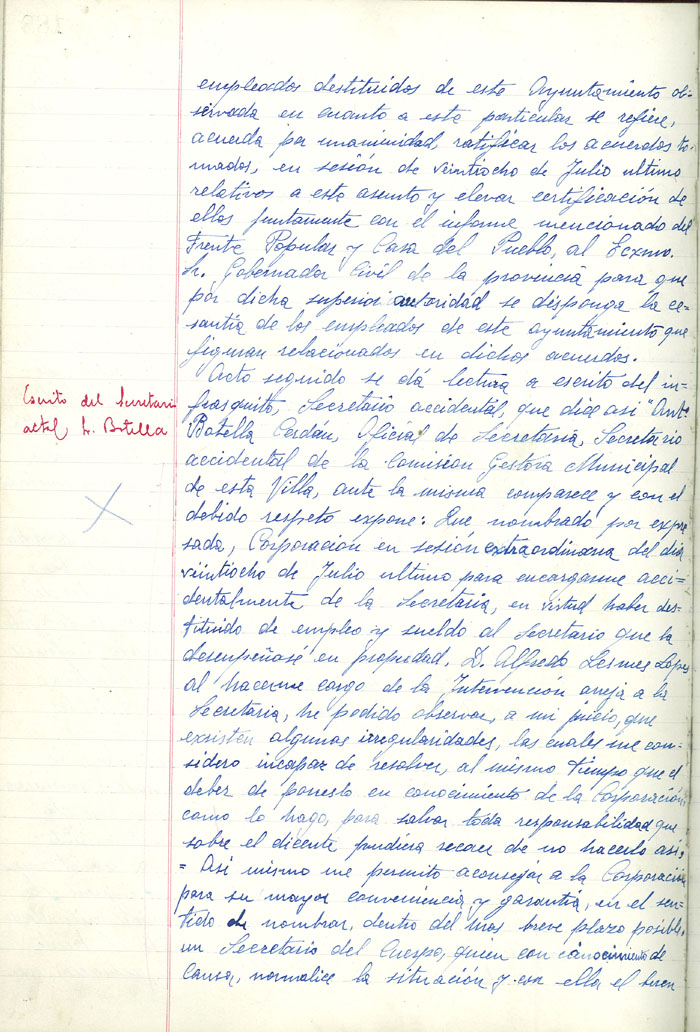 empleados destituidos de este Ayuntamiento ob-
servada en cuanto a este particular se refiere,
acuerda por unanimidad, ratificar los acuerdos to-
mados, en sesión de veintiocho de Julio ultimo
relativos a este asunto y elevar certificación de
ellos juntamente con el informe mencionado del
Frente Popular y Casa del Pueblo, al Excmo.
Sr. Gobernador Civil de la provincia para que
por dicha superior autoridad se disponga la ce-
santía de los empleados de este ayuntamiento que
figuran relacionados en dichos acuerdos.
Acto seguido se dá lectura a escrito del in-
frasquito, Secretario accidental, que dice asi "Antº
Botella Cerdán, Oficial de Secretaria, Secretario
accidental de la Comision Gestora Municipal
de esta Villa, ante la misma comparece y con el
debido respeto expone: Que nombrado por expre
sada, Corporacion en sesión extraordinaria del dia
veintiocho de Julio ultimo para encargarme acci-
dentalmente de la Secretaria, en virtud haber des-
tituido de empleo y sueldo al Secretario que la
desempeñase en propiedad, D. Alfredo Lesmes Lopez
al hacerme cargo de la Intervención aneja a la
Secretaria, he podido observar, a mi juicio, que
existen algunas irregularidades, las cuales me con-
sidero incapaz de resolver, al mismo tiempo que el
deber de ponerlo en conocimiento de la Corporación,
como lo hago, para salvar toda responsabilidad que
sobre el dicente pudiera recaer de no hacerlo asi.=
= Asi mismo me permito aconsejar a la Corporación
para su mayor conveniencia y garantía, en el sen-
tido de nombrar, dentro del mas breve plazo posible,
un Secretario del Cuerpo, quien con conocimiento de
causa, normalice la situación y con ella el buen
Escrito del Secretario
actal Sr. Botella